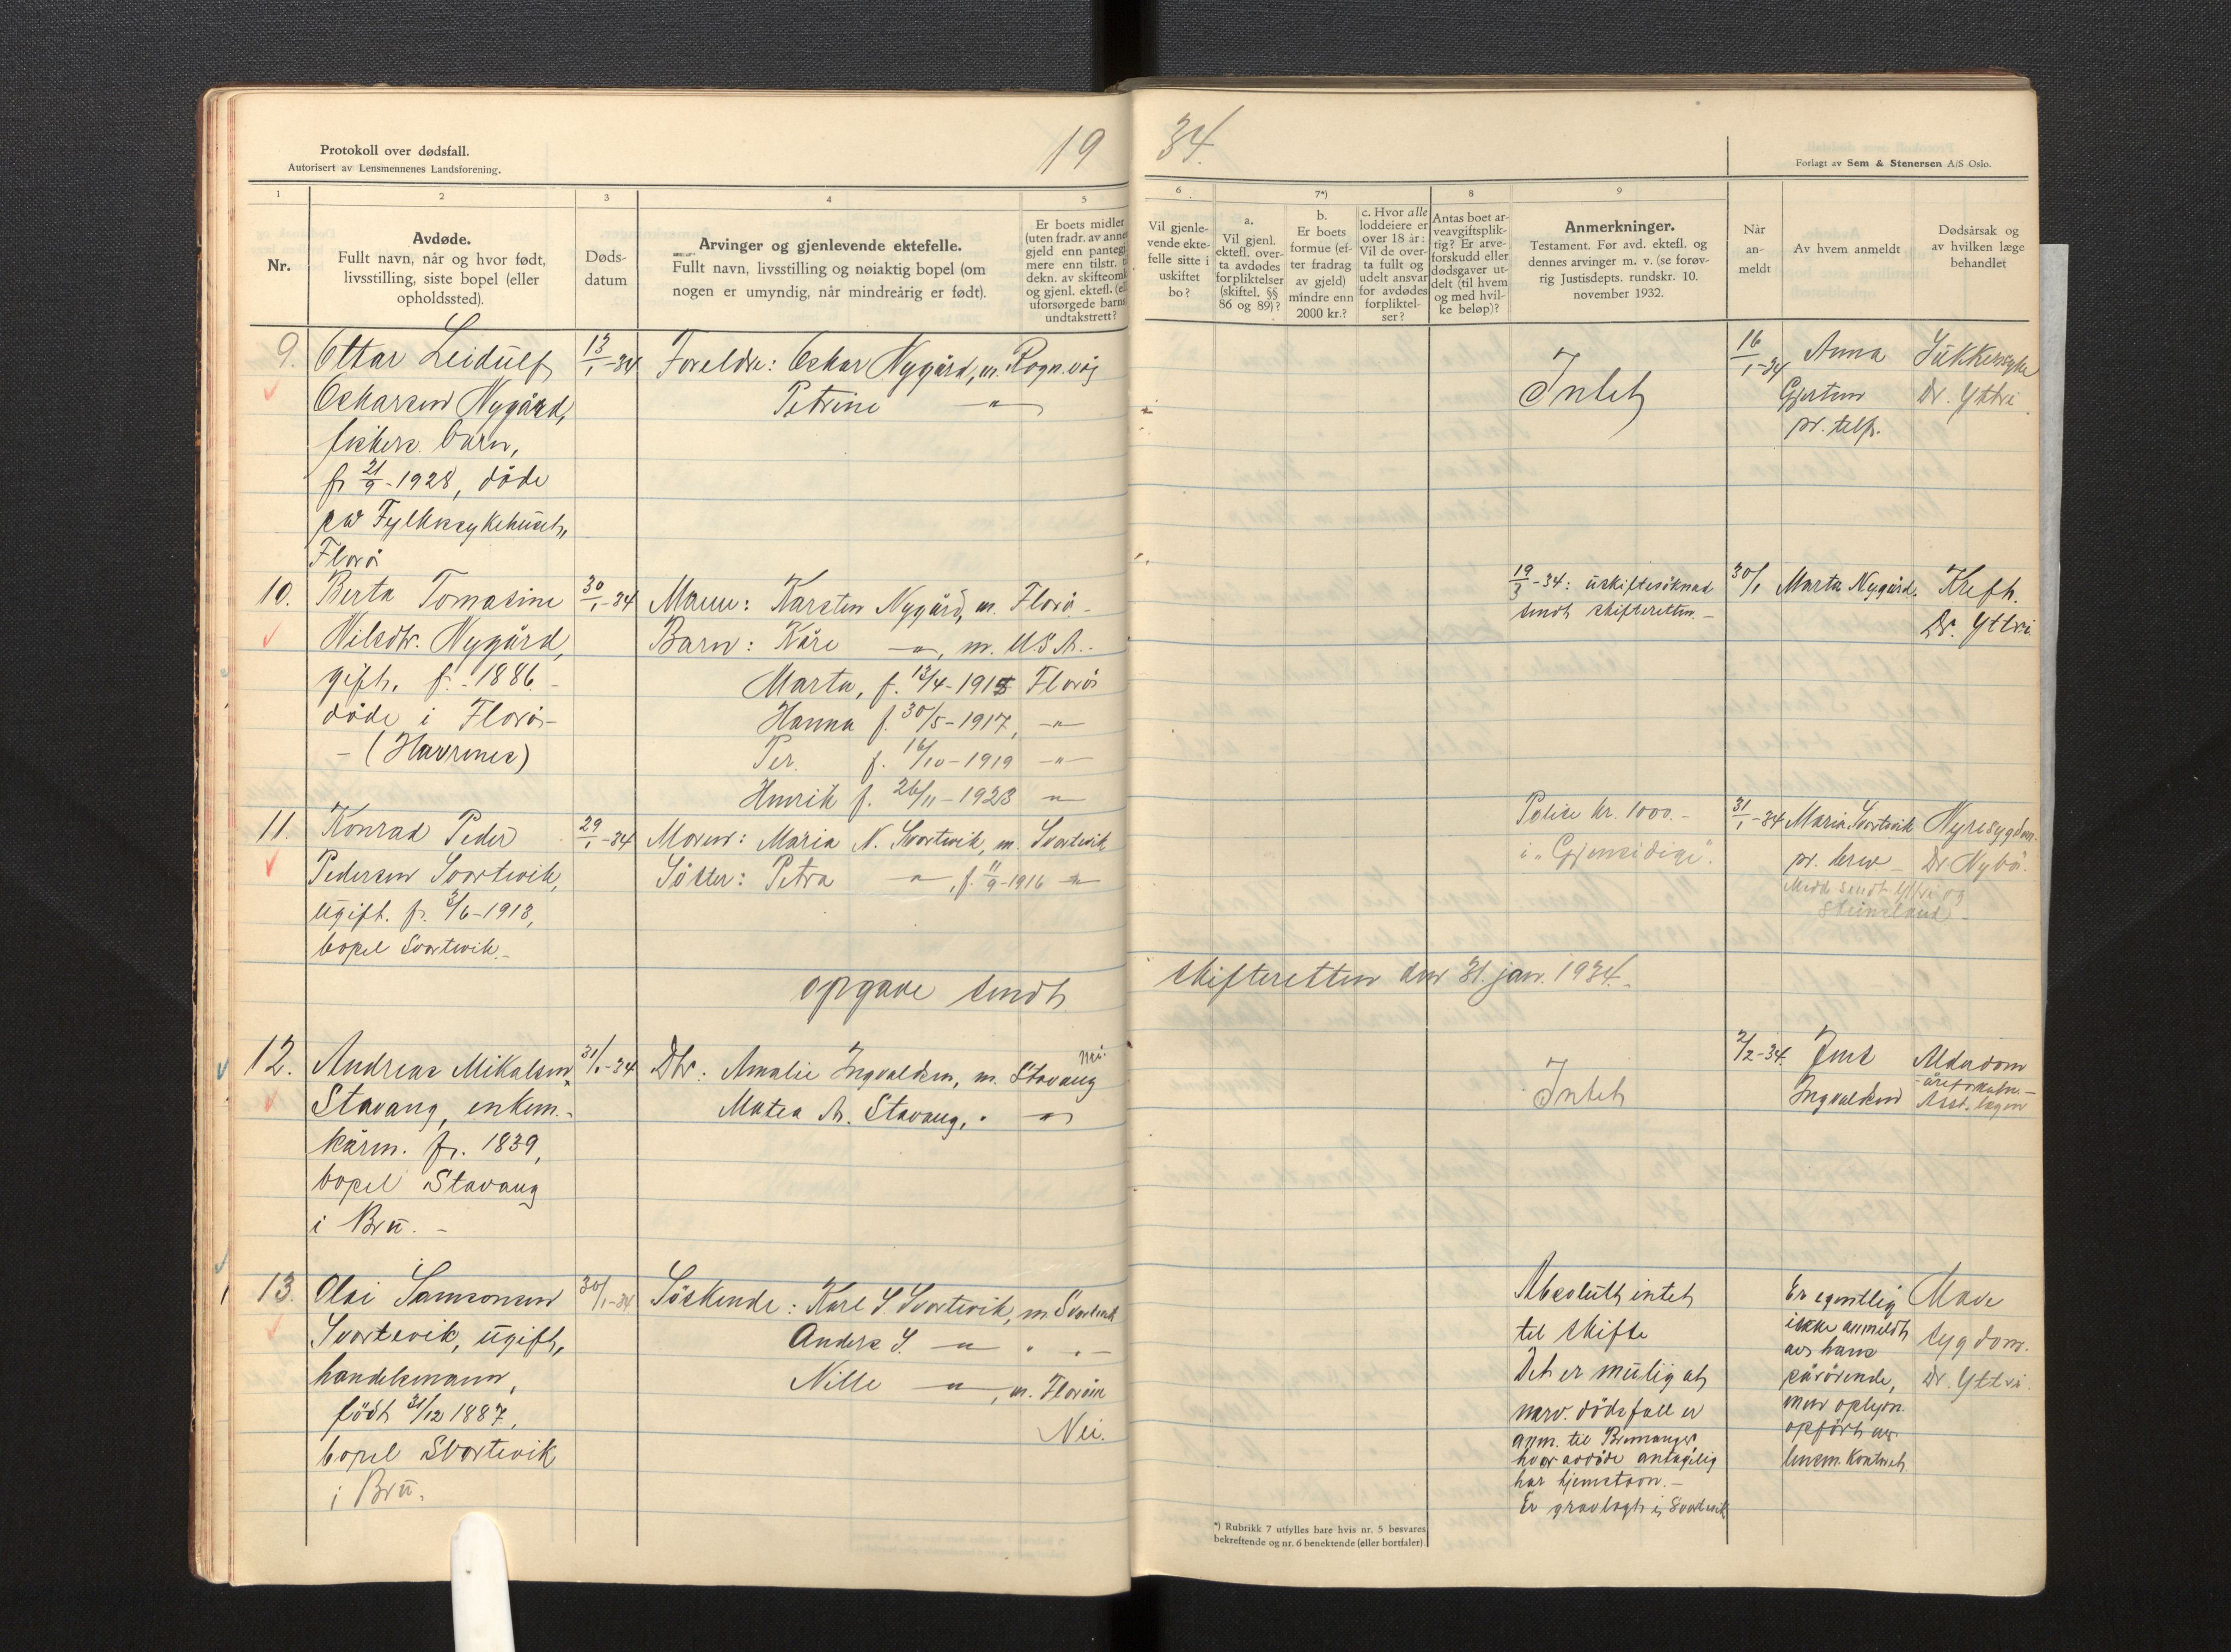 Protokoll over dødsfall.
Autorisert av Lensmennenes Landsforening.
19
34.
Forlagt av Sem & Stenersen A/S Oslo.
1
2
3
4
5
6
7*)
8
9
Nr.
Avdøde.
Fullt navn, når og hvor født,
livsstilling, siste bopel (eller
opholdssted).
Døds-
datum
Arvinger og gjenlevende ektefelle.
Fullt navn, livsstilling og nøiaktig bopel (om
nogen er umyndig, når mindreårig er født).
Er boets midler
(uten fradr. av annen
gjeld enn pantegj
mere enn tilstr. t
dekn. av skifteomk
og gjenl. ektefl. (el
uforsørgede barns
undtakstrett?
Vil gjenle-
vende ekte-
felle sitte i
uskiftet
bo?
a.
Vil gjenl.
ektefl. over-
ta avdødes
forpliktelser
(skiftel. §§
86 og 89)?
b.
Er boets
formue (ef-
ter fradrag
av gjeld)
mindre enn
2000 kr.?
c. Hvor alle
loddeiere er
over 18 år:
Vil de over-
ta fullt og
udelt ansvar
for avdødes
forpliktel-
ser?
Antas boet ar-
veavgiftsplik-
tig? Er arve-
forskudd eller
dødsgaver ut-
delt (til hvem
og med hvil-
ke beløp)?
Anmerkninger.
Testament. Før avd. ektefl. og
dennes arvinger m. v. (se forøv-
rig Justisdepts. rundskr. 10.
november 1932.
Når
an-
meldt
Av hvem anmeldt
Dødsårsak og
av hvilken læge
behandlet
9. Ottar Leidulf 13/1-34 Foreldre: Oskar Nygård, m. Rognvåg
Oskarsen Nygård, Petrine —"—
fiskers barn,
f. 21/9-1928, døde
på Fylkessykehuset,
Florø
Intet
16/1-34 Anna
Gjertsen
pr. telf.
Sukkersyke
Dr. Yttri
10. Berta Tomasine 30/1-34 Mann: Karsten Nygård, m. Florø.
Nilsdtr. Nygård, Barn: Kåre —"—, m. U.S.A.
gift, f. 1886. Marta, f. 13/4-1915 Florø
døde i Florø- Hanna f. 30/5-1917, —"—
- (Havrenes) Per. f. 16/10-1919 —"—
Henrik f. 26/11-1923 —"—
19/3-34: uskiftesøknad
sendt skifteretten.-
30/1 Marta Nygård.
Kreft.
Dr. Yttri
11. Konrad Peder 29/1-34 Moren: Maria N. Svortevik, m. Svortevik
Pedersen Svortevik, Søster: Petra —"—, f. 11/9-1916 —"—
ugift. f. 3/6-1913,
bopel Svortevik.-
Polise kr. 1000.-
i "Gjensidige".
31/1-34 Maria Svortevik
pr. brev
Nyresygdom.
Dr Nybø.
Medd. sendt Yttri og
Steinsland -
opgave sendt skifteretten den 31. jan. 1934.-
12. Andreas Mikalsen 31/1-34 Dtr: Amalie Ingvaldsen, m. Stavang
Nei.
Stavang, enkem.- Matea A. Stavang, " —"—
kårm. f. 1839,
bopel Stavang
i Bru. -
Intet
2/2-34. Jens
Ingvaldsen
Alderdom
Asst. lægen
13. Olai Samsonsen 30/1-34 Søskende: Karl S. Svortevik, m. Svortevik
Svortevik, ugift, Anders S. —"— " "—
handelsmann, Nille —"—, m. Florøen
født 21/12 1887, Nei.
bopel Svortevik
i Bru.
Absolutt intet
til skifte
Det er mulig at
nærv. dødsfall er
anm. til Bremanger
hvor avdøde antagelig
har hjemstavn. -
Er gravlagt i Svortevik
Er egentlig
ikke anmeldt
av hans
pårørende,
men oplysn.
opført av
lensm. kontoret.
Mave
sygdom.
Dr. Yttri.
*) Rubrikk 7 utfylles bare hvis nr. 5 besvares
bekreftende og nr. 6 benektende (eller bortfaler).